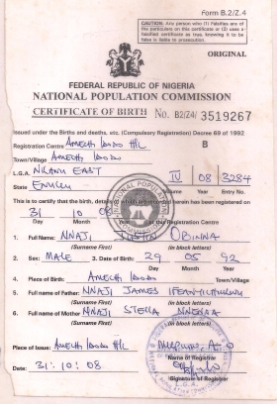 Form B.2/Z.4
CAUTION: Any person who (1) Falsifies any of the particulars on this certificate or (2) uses a falsified certificate as true, knowing it to be false is liable to prosecution.
ORIGINAL
FEDERAL REPUBLIC OF NIGERIA
NATIONAL POPULATION COMMISSION
CERTIFICATE OF BIRTH No. B2/Z4/ 3519267
Issued under the Births and deaths, etc. (Compulsory Registration) Decree 69 of 1992
Registration Centre Amechi H/C B
Town/Village Amechi
L.G.A. NKANU EAST IV 08 3284
State Enugu Volume Year Entry No.
This is to certify that the birth, details of which herein has been registered on
31 10 08
Day Month at the Registration Centre
1. Full Name: NNAJI JUSTIN OBINNA
(Surname First) (in block letters)
2. Sex: MALE 3. Date of Birth: 29 05 92
Day Month Year
4. Place of Birth: Amechi
Town/Village
5. Full name of Father: NNAJI JAMES
(Surname First) (in block letters)
6. Full name of Mother NNAJI STELLA NNENNA
(Surname First) (in block letters)
Place of Issue: Amechi H/C
Name of Registrar
Date: 31:10:08
Signature of Registrar